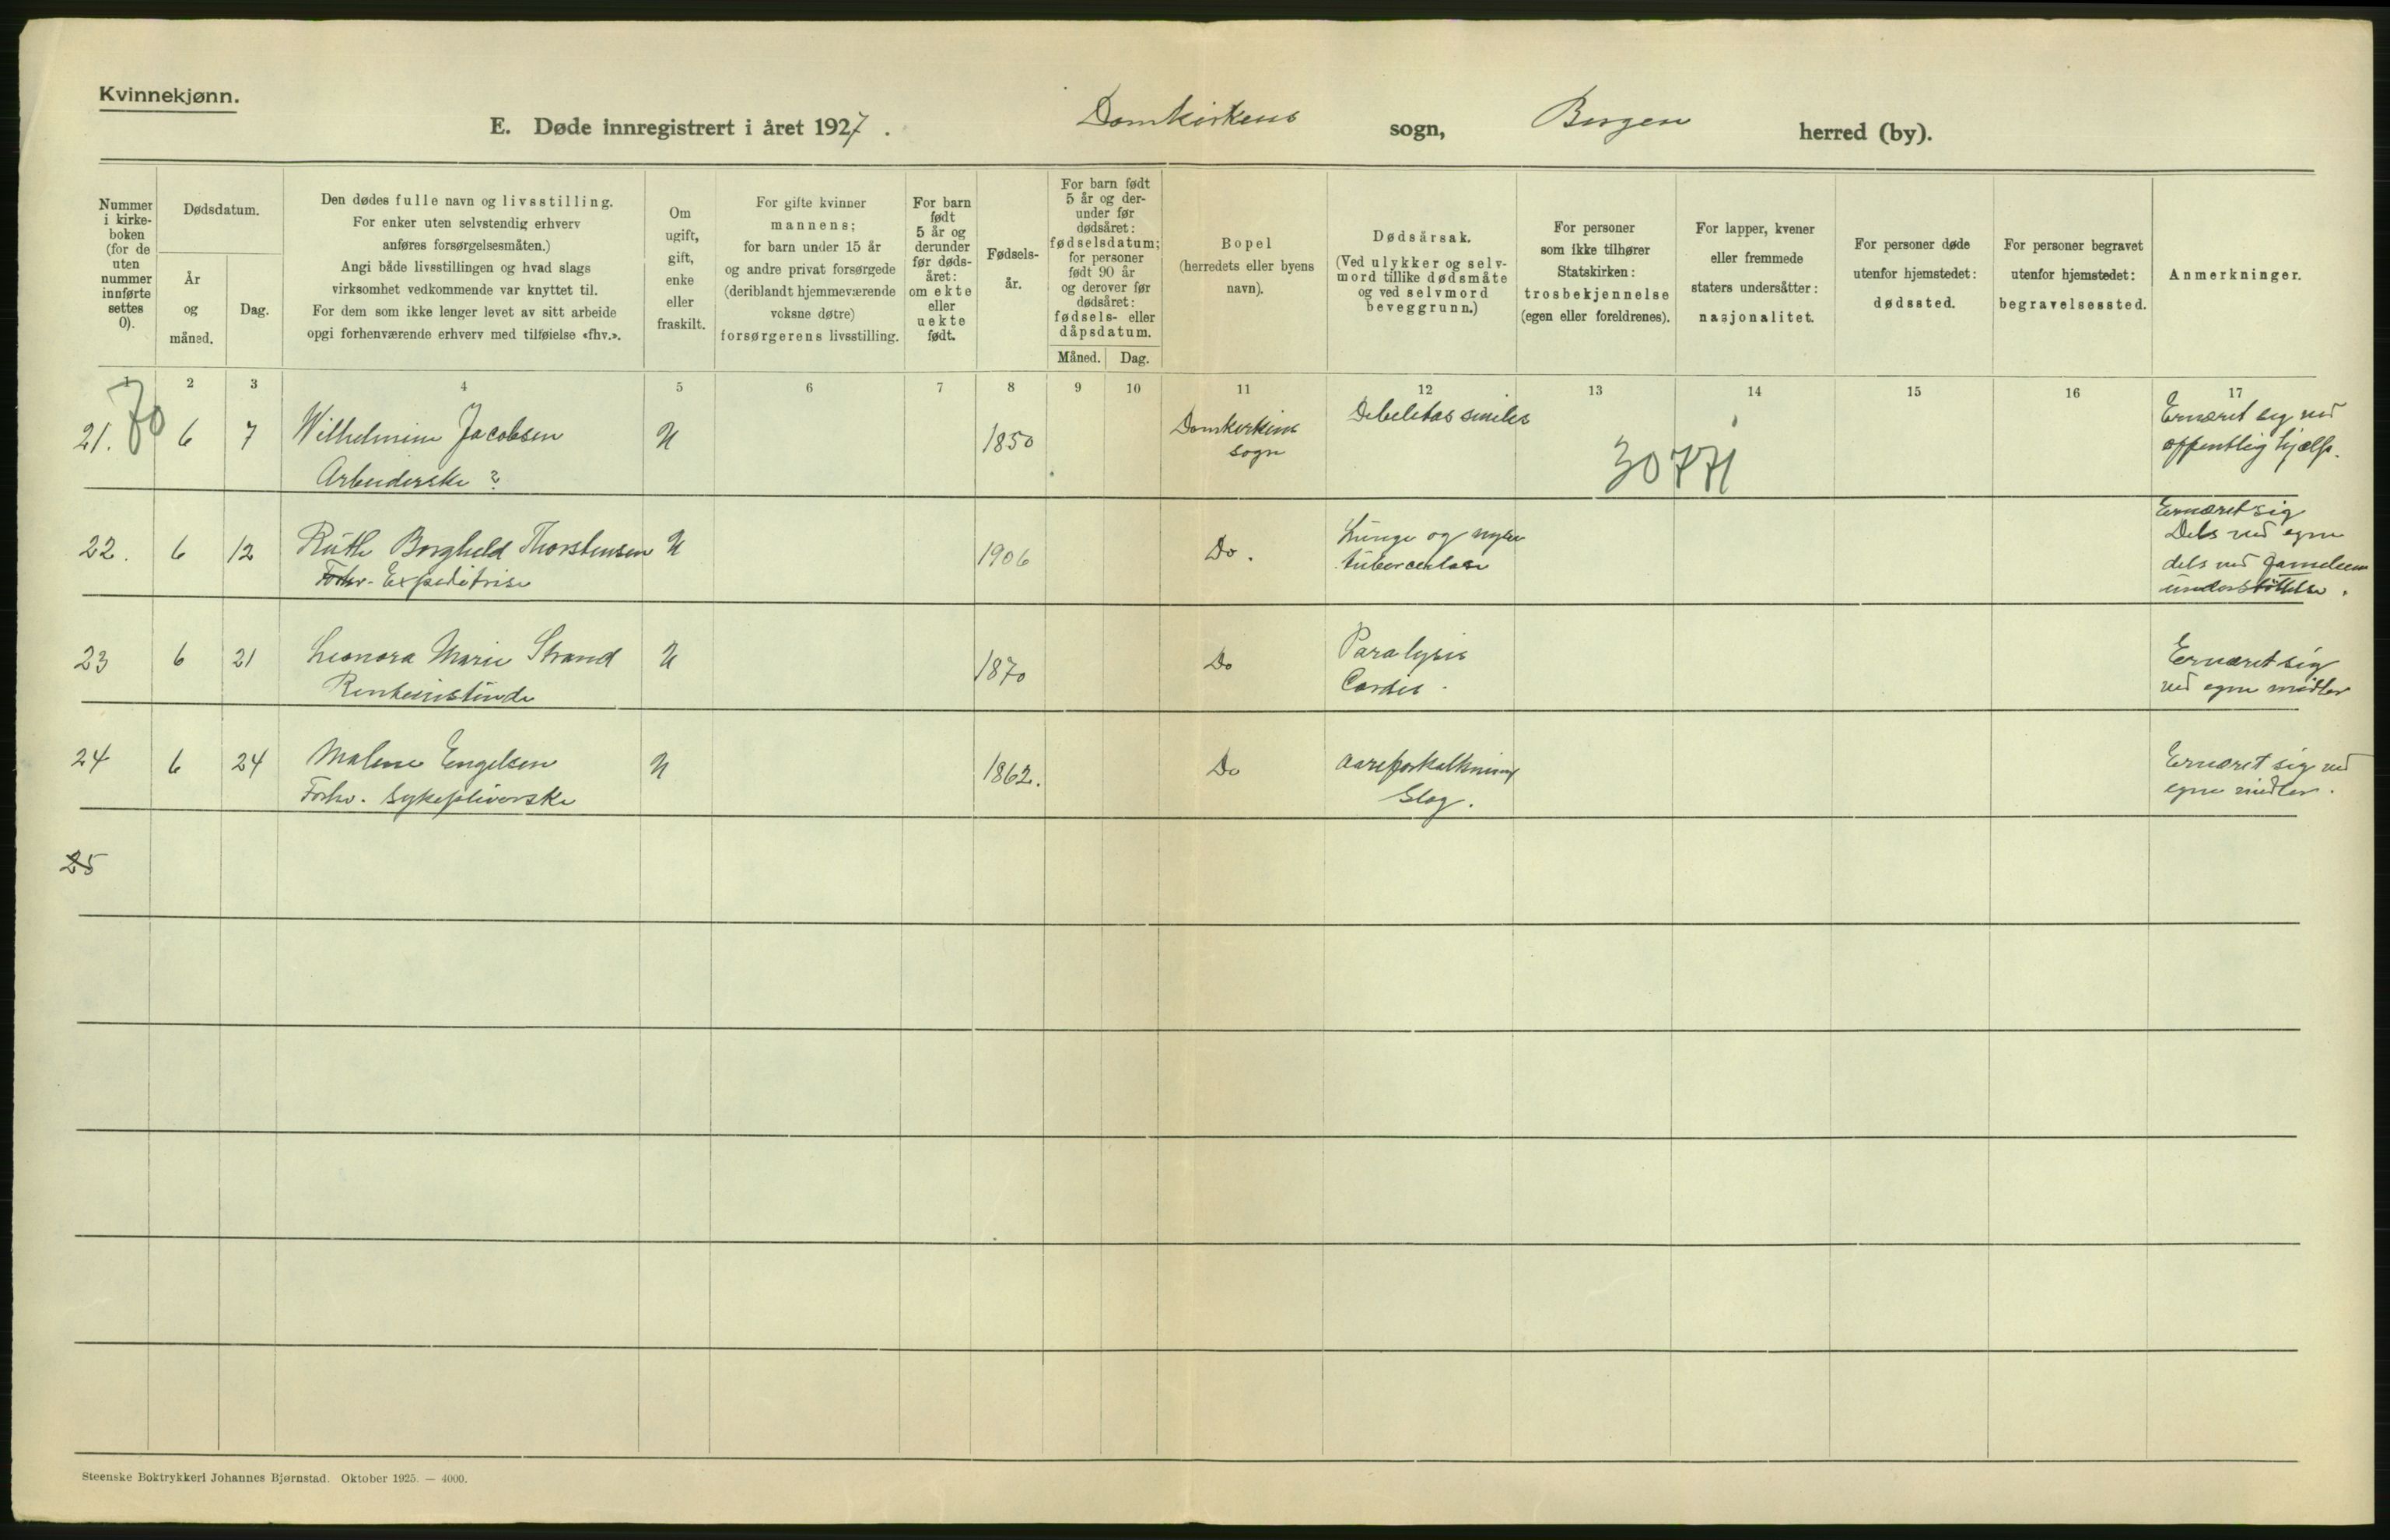 Kvinnekjønn.
E. Døde innregistrert i året 1927.
Domkirkens sogn, Bergen herred (by).
Nummer
i kirke-
boken
(for de
uten
nummer
innførte
settes
0).
Dødsdatum.
År
og
måned.
Dag.
Den dødes fulle navn og livsstilling.
For enker uten selvstendig erhverv
anføres forsørgelsesmåten.)
Angi både livsstillingen og hvad slags
virksomhet vedkommende var knyttet til.
For dem som ikke lenger levet av sitt arbeide
opgi forhenværende erhverv med tilføielse «fhv.».
Om
ugift,
gift,
enke
eller
fraskilt.
For gifte kvinner
mannens;
for barn under 15 år
og andre privat forsørgede
(deriblandt hjemmeværende
voksne døtre)
forsørgerens livsstilling.
For barn
født
5 år og
derunder
før døds-
året:
om ekte
eller
uekte
født.
Fødsels-
år.
For barn født
5 år og der-
under før
dødsåret:
fødselsdatum;
for personer
født 90 år
og derover før
dødsåret:
fødsels- eller
dåpsdatum.
Måned. Dag.
Bopel
(herredets eller byens
navn).
Dødsårsak.
(Ved ulykker og selv-
mord tillike dødsmåte
og ved selvmord
beveggrunn.)
For personer
som ikke tilhører
Statskirken:
trosbekjennelse
(egen eller foreldrenes).
For lapper, kvener
eller fremmede
staters undersåtter:
nasjonalitet.
For personer døde
utenfor hjemstedet:
dødssted.
For personer begravet
utenfor hjemstedet:
begravelsessted.
Anmerkninger.
1 2 3 4 5 6 7 8 9 10 11 12 13 14 15 16 17
70
21. 6 7 Wilhelmine Jacobsen U 1850 Domkirkens Debelitas seniles Ernæret sig ved
Arbeiderske ? sogn 30771 offentlig hjælp.
22. 6 12 Ruth Borghild Thorstensen U 1906 Do. Lunge og nyre Ernæret sig
Forhv. Expeditrise tuberculose Dels ved egne
dels ved familiens
understøttelse.
23 6 21 Leonora Marie Strand U 1870 Do Paralysis Ernæret sig
Rentenistinde Cordis. ved egne midler
24 6 24 Malene Engelsen U 1862. Do Aareforkalkning Ernæret sig ved
Forhv. sykepleierske Slag. egne midler.
25
Steenske Boktrykkeri Johannes Bjørnstad. Oktober 1925. — 4000.